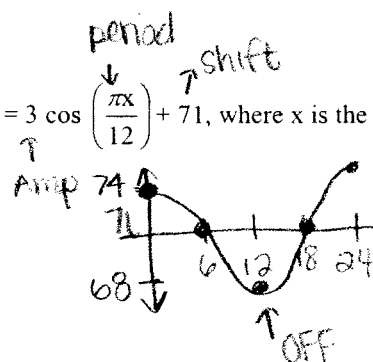 period
shift
= 3 cos (πx/12) + 71, where x is the
Amp 74
71
6 12 18 24
68
OFF